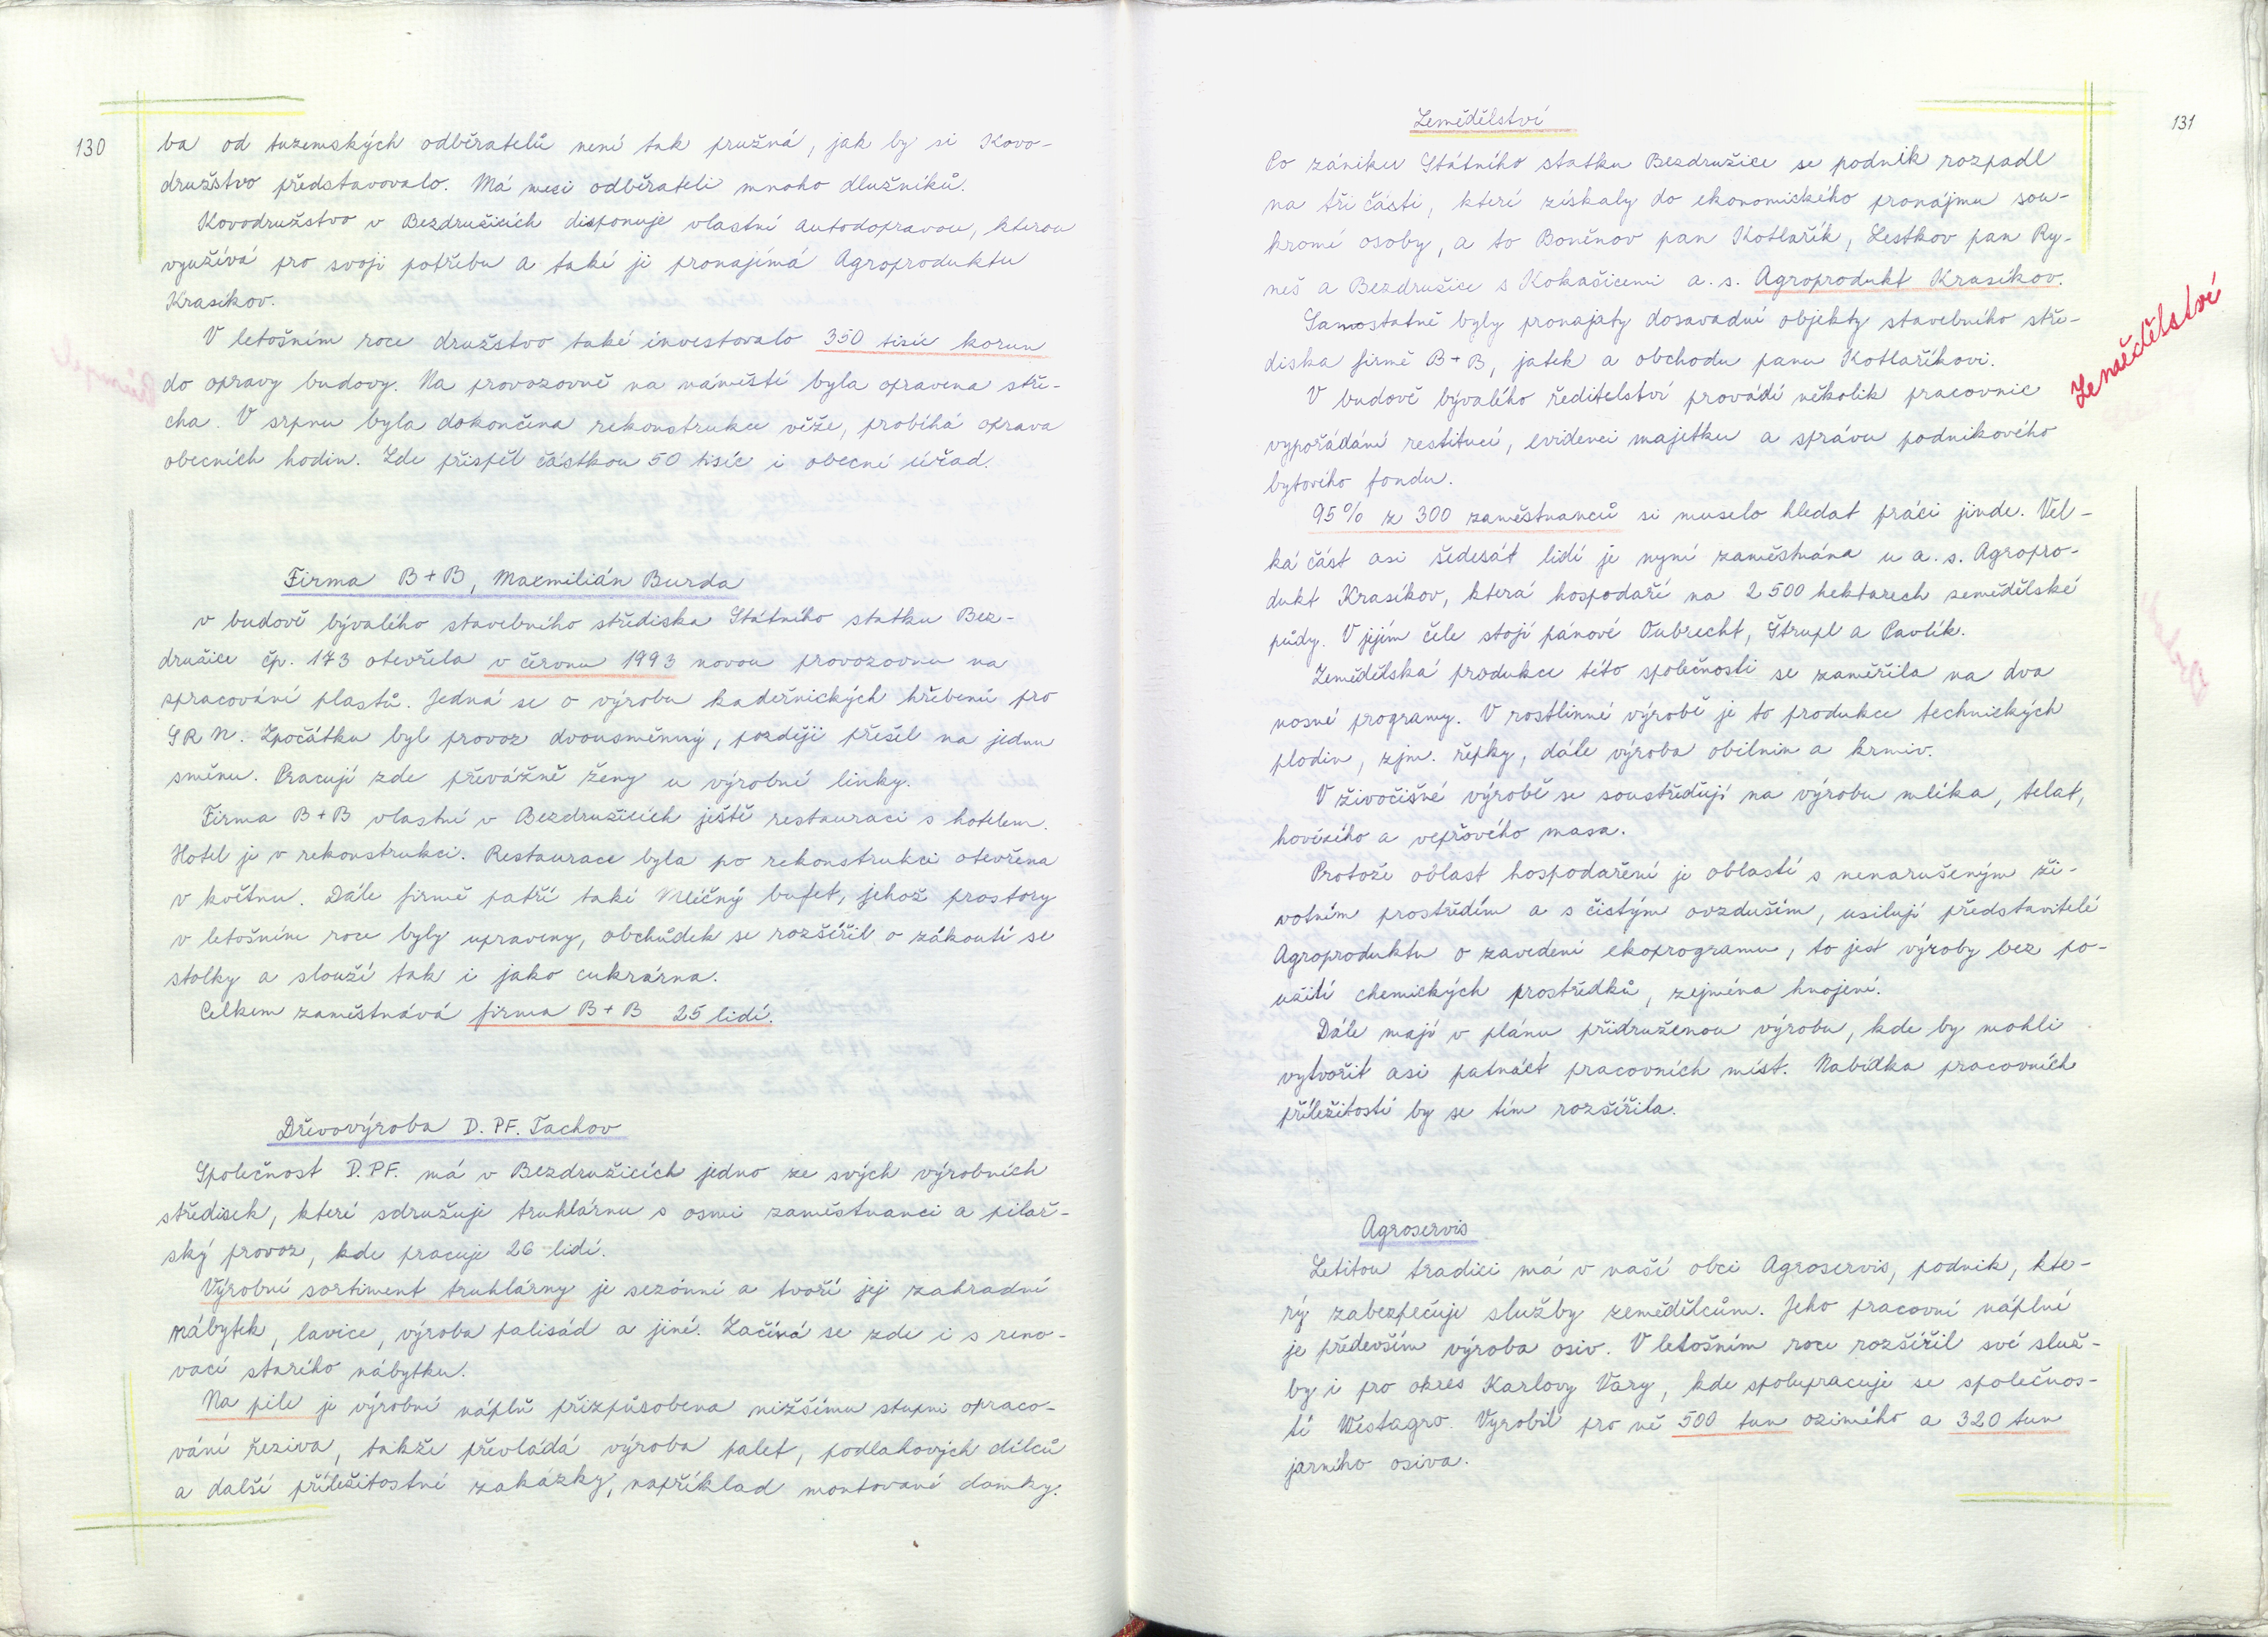 130
ba od tuzemských odběratelů není tak pružná, jak by si Kovo-
družstvo představovalo. Má mezi odběrateli mnoho dlužníků.
Kovodružstvo v Bezdružicích disponuje vlastní autodopravou, kterou
využívá pro svoji potřebu a také ji pronajímá Agroproduktu
Krasíkov.
V letošním roce družstvo také investovalo 350 tisíc korun
do opravy budovy. Na provozovně na náměstí byla opravena stře-
cha. V srpnu byla dokončena rekonstrukce věže, probíhá oprava
obecních hodin. Zde přispěl částkou 50 tisíc i obecní úřad.
Firma B+B, Maxmilián Burda
v budově bývalého stavebního střediska Státního statku Bez-
družice čp. 173 otevřela v červnu 1993 novou provozovnu na
spracování plastů. Jedná se o výrobu kadeřnických hřebenů pro
SRN. Zpočátku byl provoz dvousměnný, později přešel na jednu
směnu. Pracují zde převážně ženy u výrobní linky.
Firma B+B vlastní v Bezdružicích ještě restauraci s hotelem.
Hotel je v rekonstrukci. Restaurace byla po rekonstrukci otevřena
v květnu. Dále firmě patří také Mléčný bufet, jehož prostory
v letošním roce byly upraveny, obchůdek se rozšířil o zákoutí se
stolky a slouží tak i jako cukrárna.
Celkem zaměstnává firma B+B 25 lidí.
Dřevovýroba D.PF. Tachov
Společnost D.PF. má v Bezdružicích jedno ze svých výrobních
středisek, které sdružuje truhlárnu s osmi zaměstnanci a pilař-
ský provoz, kde pracuje 26 lidí.
Výrobní sortiment truhlárny je sezónní a tvoří jej zahradní
nábytek, lavice, výroba palisád a jiné. Začíná se zde i s reno-
vací starého nábytku.
Na pile je výrobní náplň přizpůsobena nižšímu stupni opraco-
vání řeziva, takže převládá výroba palet, podlahových dílců
a další příležitostné zakázky, například montované domky.
131
Zemědělství
Po zániku Státního statku Bezdružice se podnik rozpadl
na tři části, které získaly do ekonomického pronájmu sou-
kromé osoby, a to Boněnov pan Kotlařík, Lestkov pan Ry-
neš a Bezdružice s Kokašicemi a.s. Agroprodukt Krasíkov.
Samostatně byly pronajaty dosavadní objekty stavebního stře-
diska firmě B+B, jatek a obchodu panu Kotlaříkovi.
V budově bývalého ředitelství provádí několik pracovnic
vypořádání restitucí, evidenci majetku a správu podnikového
bytového fondu.
Zemědělství
95% z 300 zaměstnanců si muselo hledat práci jinde. Vel-
ká část asi šedesát lidí je nyní zaměstnána u a.s. Agropro-
dukt Krasíkov, která hospodaří na 2 500 hektarech zemědělské
půdy. V jejím čele stojí pánové Oubrecht, Štrupl a Pavlík.
Zemědělská produkce této společnosti se zaměřila na dva
nosné programy. V rostlinné výrobě je to produkce technických
plodin, zjm. řepky, dále výroba obilnin a krmiv.
V živočišné výrobě se soustřeďují na výrobu mléka, telat,
hovězího a vepřového masa.
Protože oblast hospodaření je oblastí s nenarušeným ži-
votním prostředím a s čistým ovzduším, usilují představitelé
Agroproduktu o zavedení ekoprogramu, to jest výroby bez po-
užití chemických prostředků, zejména hnojení.
Dále mají v plánu přidruženou výrobu, kde by mohli
vytvořit asi patnáct pracovních míst. Nabídka pracovních
příležitostí by se tím rozšířila.
Agroservis
Letitou tradici má v naší obci Agroservis, podnik, kte-
rý zabezpečuje služby zemědělcům. Jeho pracovní náplní
je především výroba osiv. V letošním roce rozšířil své služ-
by i pro okres Karlovy Vary, kde spolupracuje se společnos-
tí Westagro. Vyrobil pro ně 500 tun ozimého a 320 tun
jarního osiva.